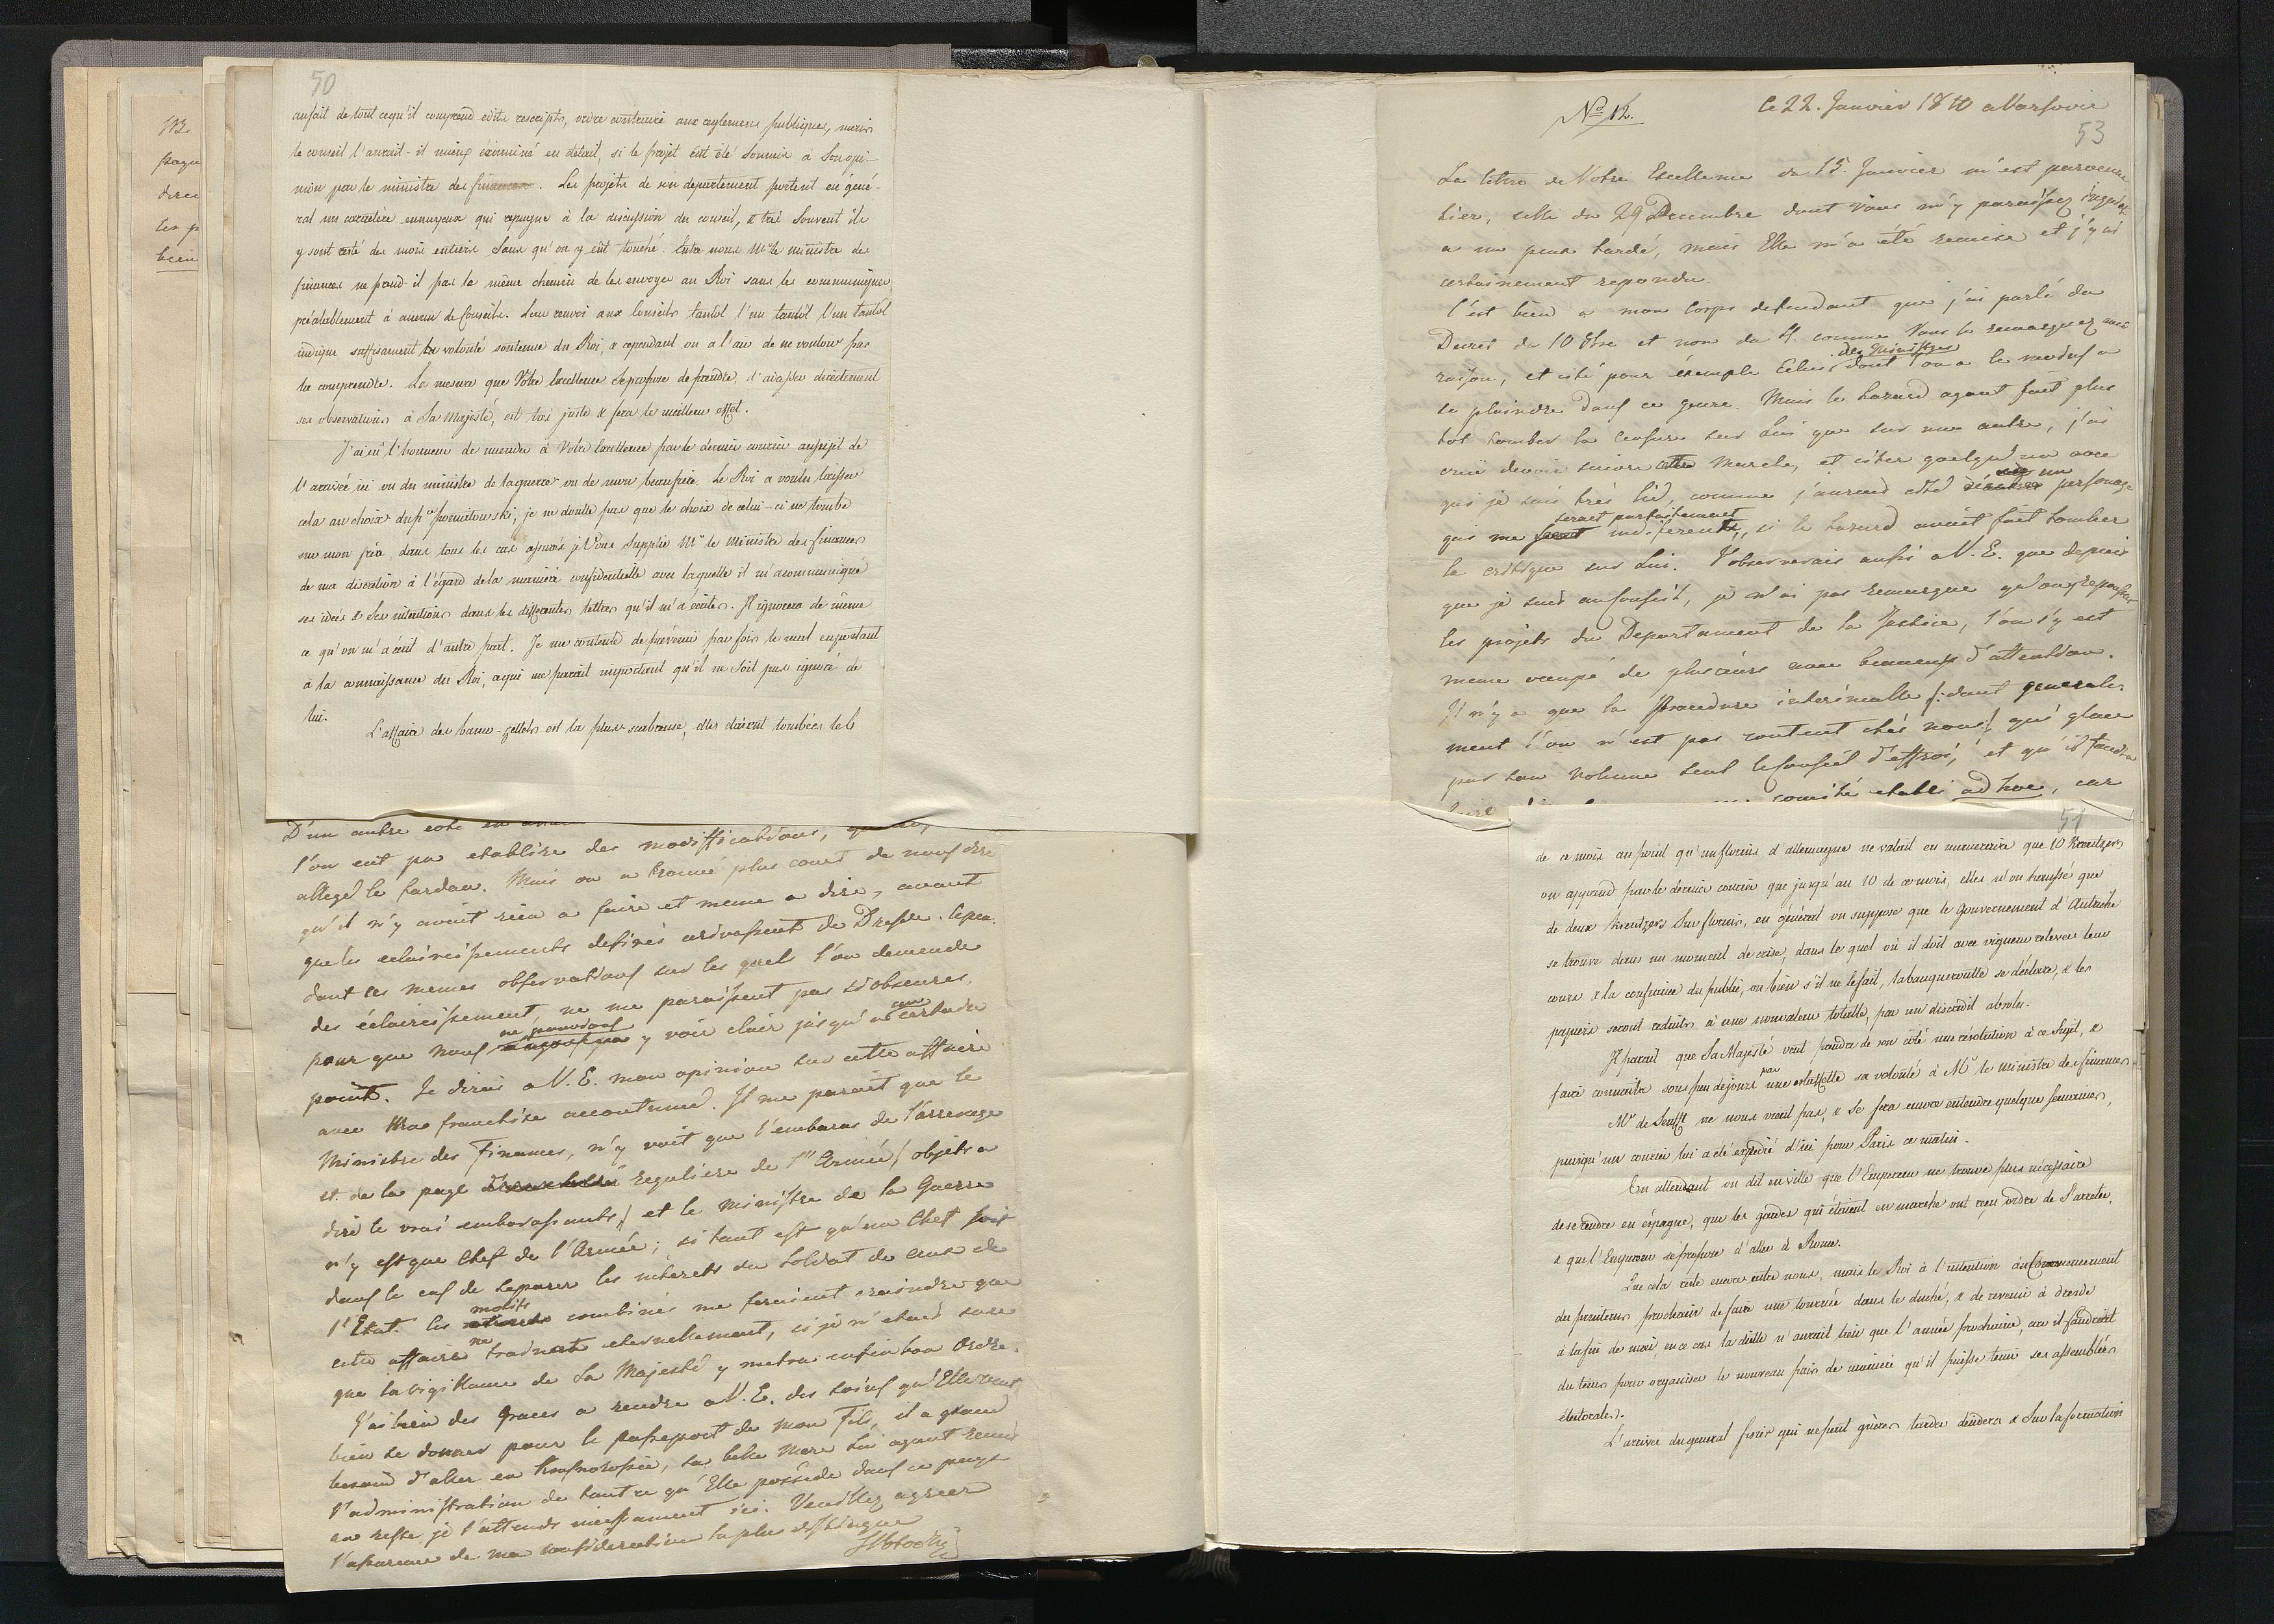 50
aufait de tout ce qu'il comprend edits rescripts, ordre contraire aux reglemens publiques, mais
le conseil l'aurait-il mieux éxaminé en detail, si le projet eut été soumis à son opi-
nion par le ministre des finances. Les projets de son departement portent en géné-
ral un caractère ennuyeux qui repugne à la discussion du conseil, & très souvent ils
y sont resté des mois entiers sans qu'on y eût touché. Entre nous Mr le ministre des
finances ne prend-il pas le même chemin de les envoyer au Roi sans les communiquer
préalablement à aucun de Conseils. Leur renvoi aux Conseils tantôt l'un tantôt l'un tantôt
indique suffisament la volonté soutenue du Roi, & cependant on a l'air de ne vouloir pas
la comprendre. La mesure que Votre Excellence se propose de prendre, d'adresser directement
ses observations à Sa Majesté, est très juste & fera le meilleur effet.
J'ai eû l'honneur de mander à Votre Excellence par le dernier courier au sujet de
l'arrivée ici ou du ministre de la guerre ou de mon beaufrère. Le Roi a voulu laisser
cela au choix du pce poniatowski, je ne doutte pas que le choix de celui-ci ne tombe
sur mon frère, dans tous les cas assurés je Vous supplie Mr le Ministre des finances
de ma discretion à l'égard de la manière confidentielle avec laquelle il m'a communiqué
ses idées & ses intentions dans les differentes lettres qu'il m'a écrites. Il ignorera de même
ce qu'on m'a écrit d'autre part. Je me contente de parvenir par fois le seul
à la connaissance du Roi, ce qui me parait important qu'il ne soit pas ignoré de
lui.
L'affaire des banco-zettels est la plus scabreuse, elles etaient tombées le 6
D'un autre coté
l'on eut pu etablire des modiffications,
alleger le fardau. Mais on a trouvé plus court de nous dire
qu'il n'y avait rien a faire et meme a dire, avant
que les eclaircissements desirés arivassent de Dresde. Cepen-
dant ces memes observations sur les quels l'on demende
des éclaircissement, ne me paraissent pas si obscures,
pour que nous ne puissions y voir clair jusqu'a un certain
point. Je dirai a V. E. mon opinion sur cette affaire
avec Ma franchise accoutumée. Il me parait que le
Ministre des Finances, n'y voit que l'embaras de l'arrerage
et de la paye reguliere de l'Armée / objets a
dire le vrai embarassants / et le Ministre de la Guerre
n'y est que Chef de l'Armée; si tant est qu'un Chef soit
dans le cas de separer les interets du Soldat de ceux de
l'Etat. les motifs combinés me feraient craindre que
cette affaire ne trainat eternellement, si je n'etais sure
que la vigillance de Sa Majesté y mettra enfin bon Ordre.
J'ai bien des Graces a rendre a V. E. des soins qu'Elle veut
bien se donner pour le passeport de mon Fils, il a grand
besoin d'aller en , sa belle Mere lui ayant remis
l'administration de tout ce qu'Elle possède dans ce pays
au reste je l'attends incessament ici. Veuillez agréer
l'assurance de ma consideration la plus distinguée
No 12.
le 22. Janvier 1810 a Varsovie
53
La lettre de Votre Excellence du 15. Janvier m'est parvenue
hier, celle du 29 Decembre dont Vous m'y paraissez inquiet
a un peu tardé, mais Elle m'a été remise et j'y ai
certainement repondu.
C'est bien a mon Corps defendant que j'ai parlé du
Decret du 10 8bre et non du 4. comme Vous le remarquez avec
raison, et cité pour éxemple Celui des Ministres dont l'on a le moins a
se plaindre dans ce genre. Mais le hazard ayant fait plus
tot tomber la Censure sur Lui que sur un autre, j'ai
crû devoir suivre cette Marche, et citer quelqu'un avec
qui je suis très lié, comme j'aurais cité un personage
qui me serait parfaitement indiferent, si le hazard avait fait tomber
la critique sur Lui. J'observerais aussi a V. E. que depuis
que je suis au Conseil, je n'ai pas remarqué qu'on y repousse
les projets du Departament de la Justice, l'on s'y est
meme occupé de plusieurs avec beaucoup d'attention.
Il n'y a que la Procedure interimalle /: dont generale-
ment l'on n'est pas content chés nous :/ qui glace
par son Volume seul le Conseil d'effroi, et qu'il faudra
comité etabli ad hoc, car
51
de ce mois au point qu'un florins d'allemagne ne valait en numeraire que 10 Kreutzers
on apprend par le dernier courier que jusqu'au 10 de ce mois, elles n'on haussé que
de deux kreutzers sur florins, en général on suppose que le Gouvernement d'Autriche
se trouve dans un moment de crise, dans le quel où il doit avec vigueur relever leur
cours & la confiance du public, ou bien s'il ne le fait, la banqueroutte se déclare, & les
papiers seront reduits à une nonvaleur totalle, par un discredit absolu.
Il parait que Sa Majesté veut prendre de son côté une résolution à ce sujet, &
faire connaitre sous peu de jours par une estaffette sa volonté à Mr le ministre des finances
Mr de Senfft ne nous vient pas, & se fera encore attendre quelque semaines,
puisqu'un courier lui a été expedié d'ici pour Paris ce matin.
En attendant on dit en ville que l'Empereur ne trouve plus nécessaire
de se rendre en éspagne, que les gardes qui étaient en marche ont reçu ordre de s'arreter,
& que l'Empereur se propose d'aller à Rome.
Que cela reste encore entre nous, mais le Roi à l'intention au Commencement
du printems prochain de faire une tournée dans le duché, & de revenir à dresde
à la fin de mai, en ce cas la diette n'aurait lieu que l'année prochaine, car il faudrait
du tems pour organiser le nouveau païs de manière qu'il puisse tenir ses assemblées
électorales.
L'arrivée du general fiszer qui ne peut guères tarder decidera & sur la formation